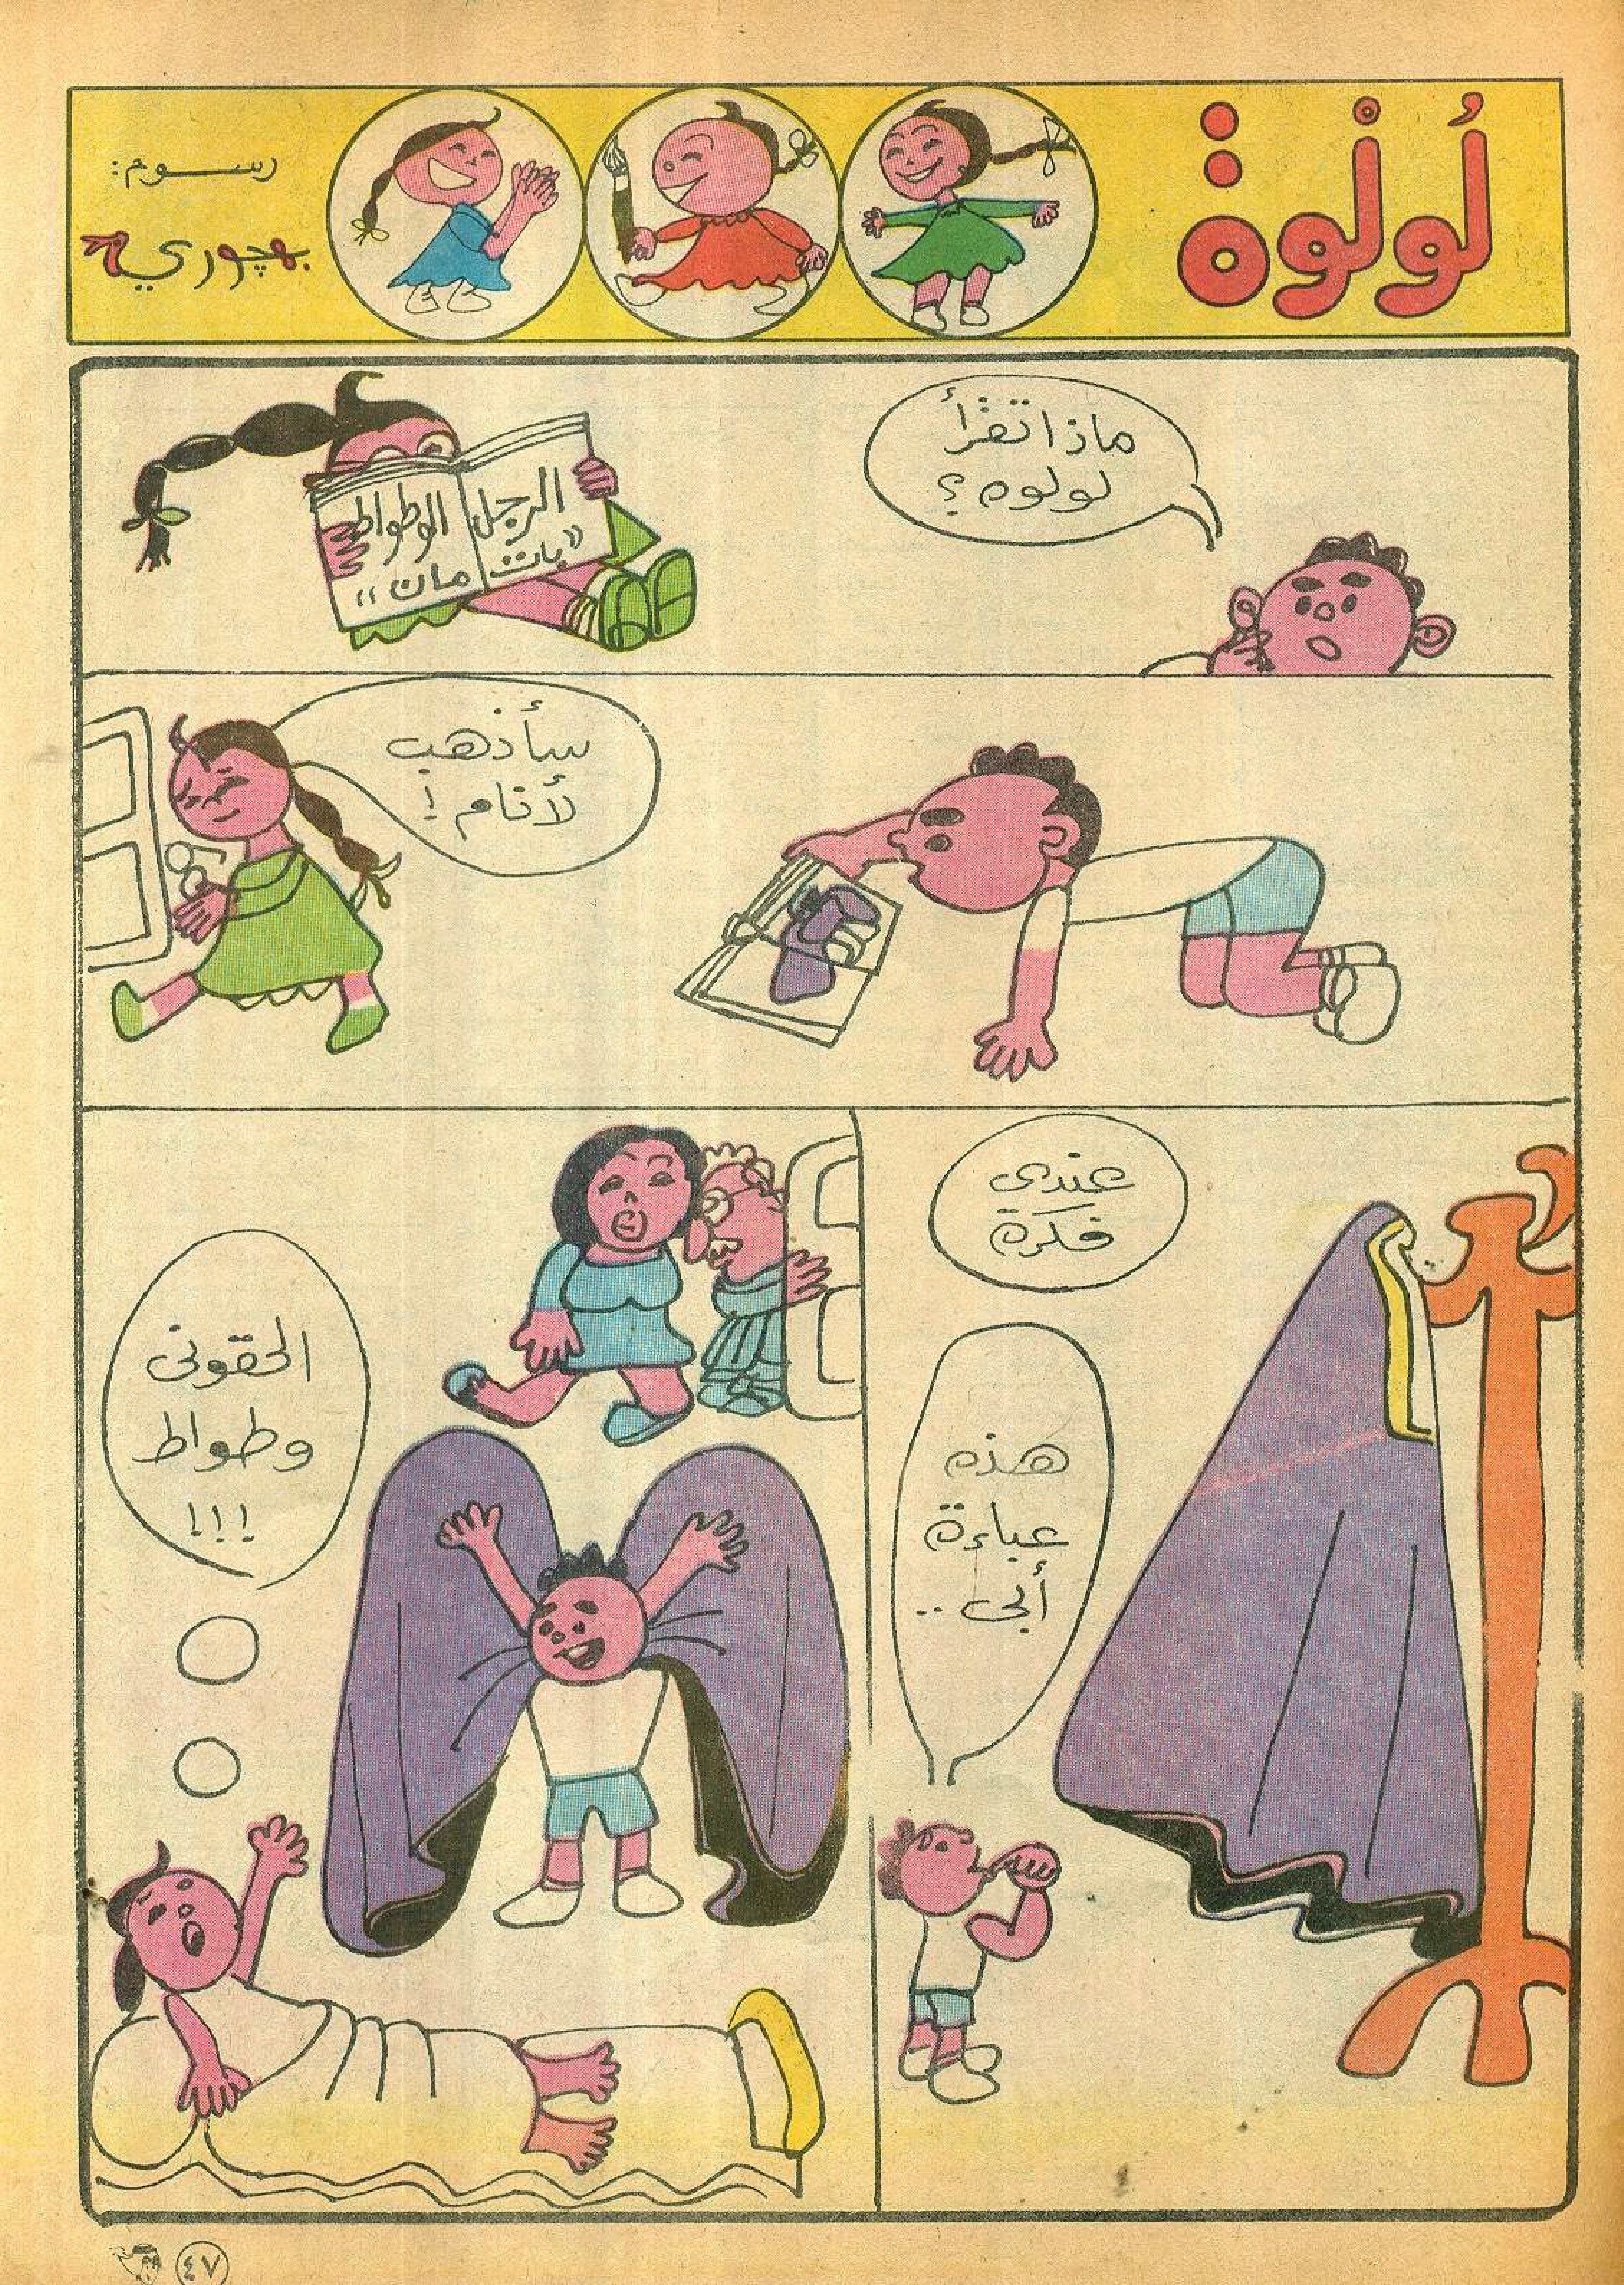 لُولْوة
رسوم:
بهجوري
ماذا تقْرأ
لولوه ؟
الرجل الوطواط
«بات مان»
سأذهب
لأنام !
عندى
فكرة
هذه
عباءة
أبى ..
الحقونى
وطواط
!!!
٤٧